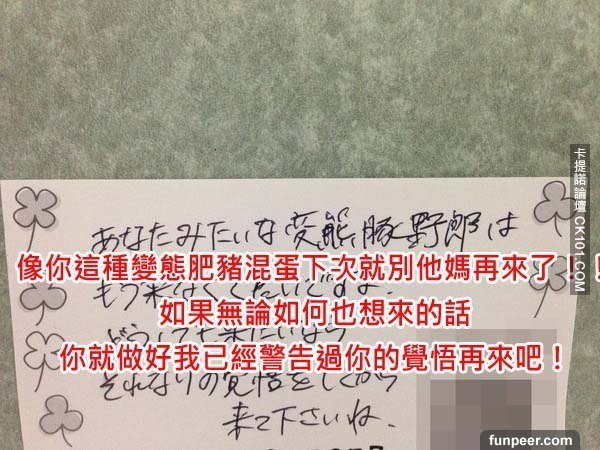 あなたみたいな変態豚野郎は
像你這種變態肥豬混蛋下次就別他媽再來了！！
もう来なくていいですよ.
如果無論如何也想來的話
どうしても来たいなら
你就做好我已經警告過你的覺悟再來吧！
それなりの覚悟をしてから
来て下さいね.
卡提諾論壇 CK101.COM
funpeer.com